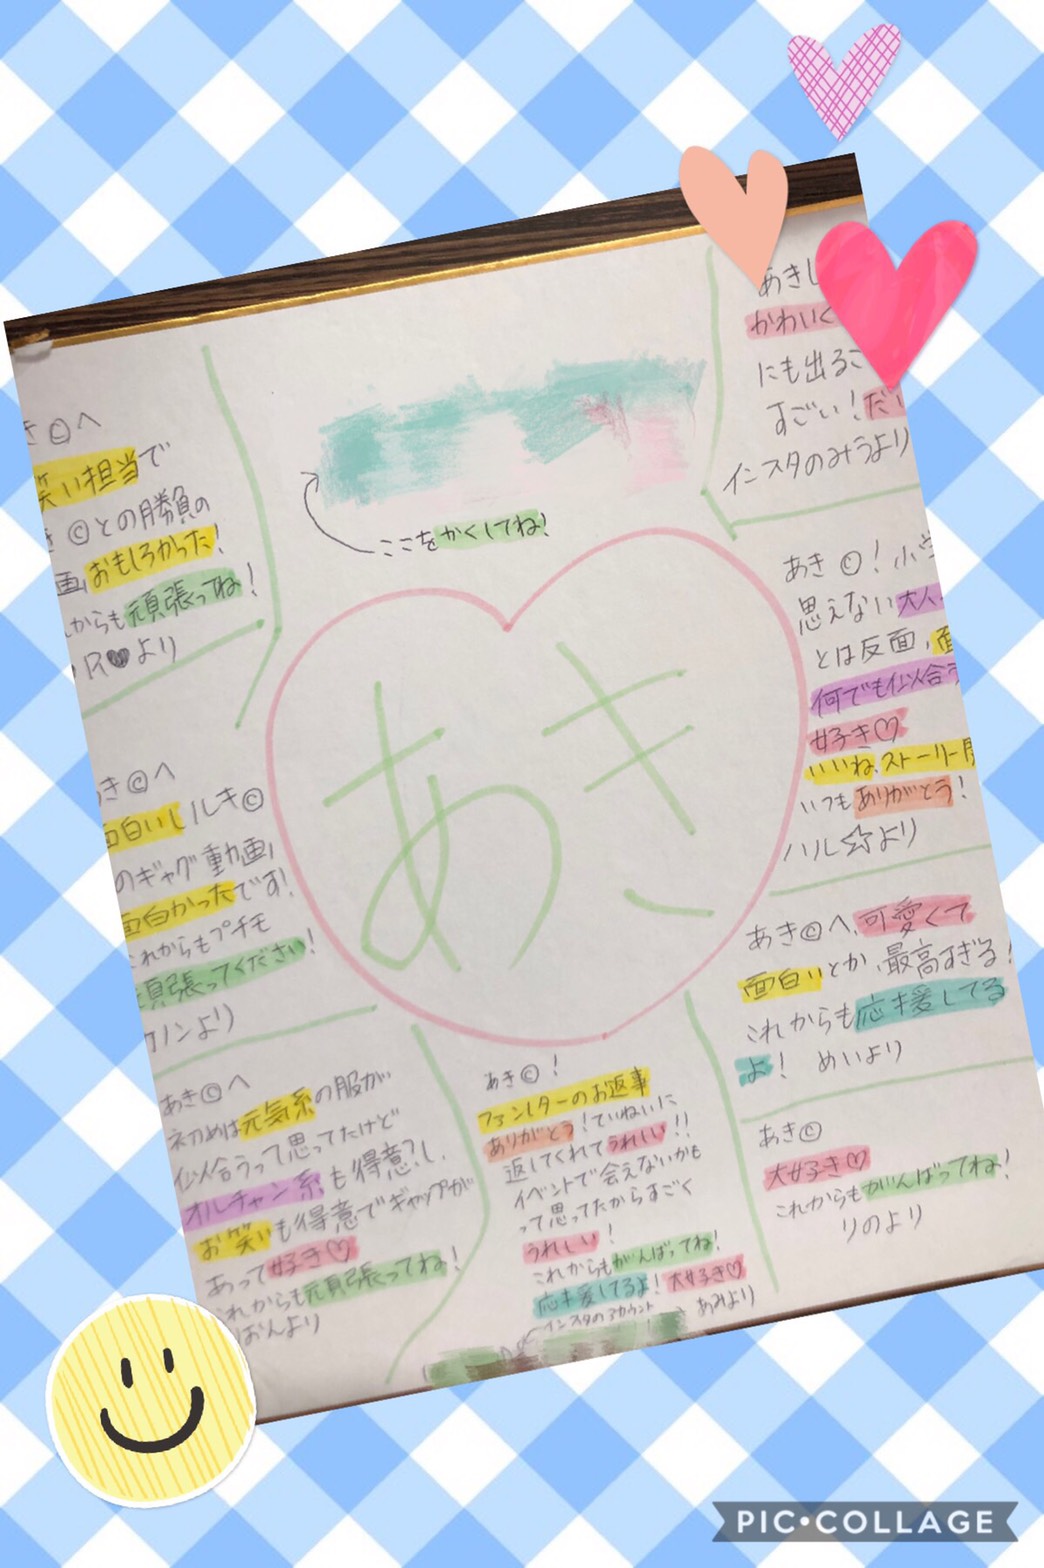 ここをかくしてね!
あき
き©へ
笑い担当で
©との勝負の
画おもしろかった!
からも頑張ってね!
R♥より
き©へ
面白いしルキ©
のギャグ動画
面白かったです!
これからもプチモ
頑張ってください!
カノンより
あき©へ
初めは元気系の服が
似合うって思ってたけど
オルチャン系も得意?し、
お笑いも得意でギャップが
あって好き♡
これからも頑張ってね!
おんより
あき©!
ファンレターのお返事
ありがとう!ていねいに
返してくれてうれしい!!
イベントで会えないかも
って思ってたからすごく
うれしい!
これからもがんばってね!
応援してるよ!大好き♡
インスタのアカウント あみより
あきし
かわいく
にも出るこ
すごい!だい
インスタのみうより
あき©!小学
思えない大人
とは反面、面
何でも似合う
好き♡
いいね、ストーリー
いつもありがとう!
ハル☆より
あき©へ、可愛くて
面白いとか、最高すぎる!
これからも応援してる
よ! めいより
あき©
大好き♡
これからもがんばってね!
りのより
PIC•COLLAGE